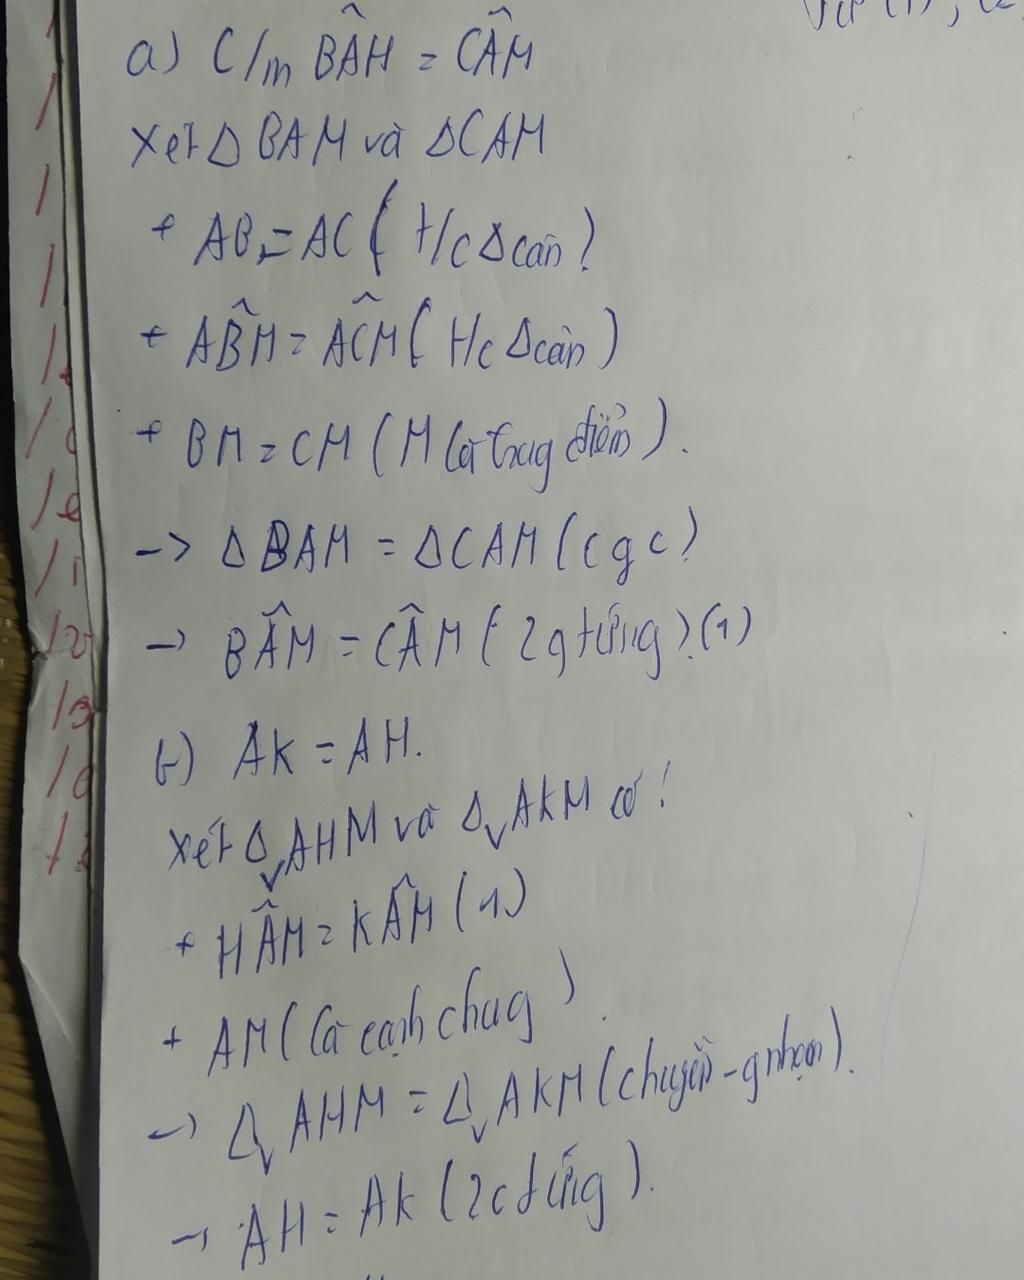 a) C/m BÂH = CÂM
Xét Δ BAM và ΔCAM
+ AB = AC ( t/c Δ cân )
+ AB̂M = AĈM ( t/c Δcân )
+ BM = CM ( M là trug điểm ).
-> Δ BAM = ΔCAM ( c g c )
-> BÂM = CÂM ( 2 g tứng ). (1)
b) AK = AH.
Xét Δv AHM và Δv AKM có :
+ HÂM = KÂM (1)
+ AM ( là cạnh chug ).
-> Δv AHM = Δv AKM ( chuyền - g nhọn ).
-> AH = AK ( 2 c tứng ).